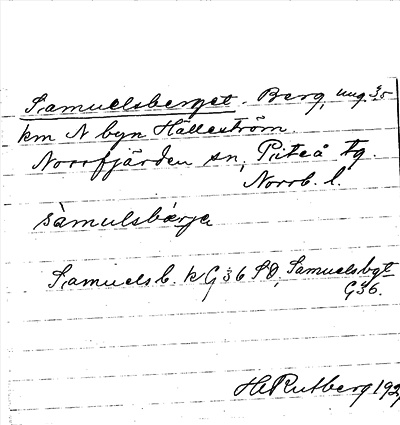 Samuelsberget. Berg, ung. 3,5
km N byn Hälleström.
Norrfjärden sn, Piteå tg.
Norrb. l.
sàmulsbærje
Samuelsb. k G36 SO, Samuelsbgt
G36.
H Rutberg 192